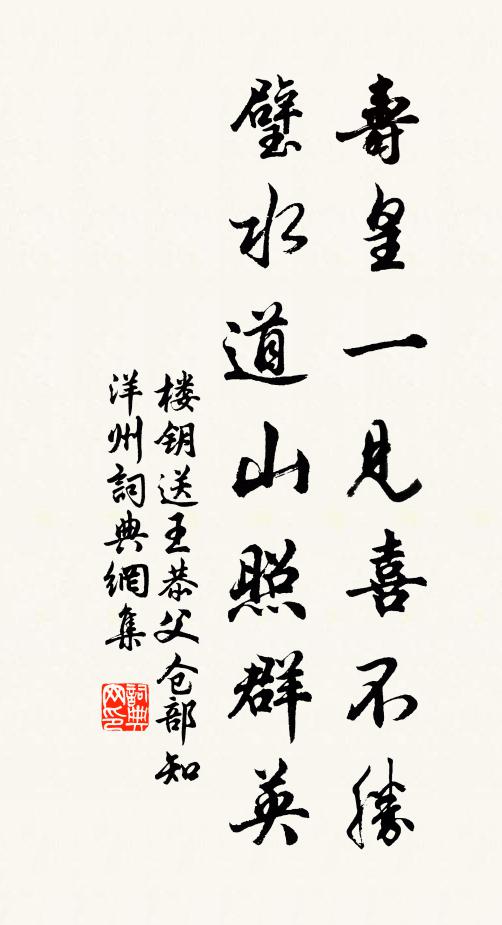 壽皇一見喜不勝
璧水道山照群英
楼钥送王恭父仓部知
洋州詞典網集
詞典
网印